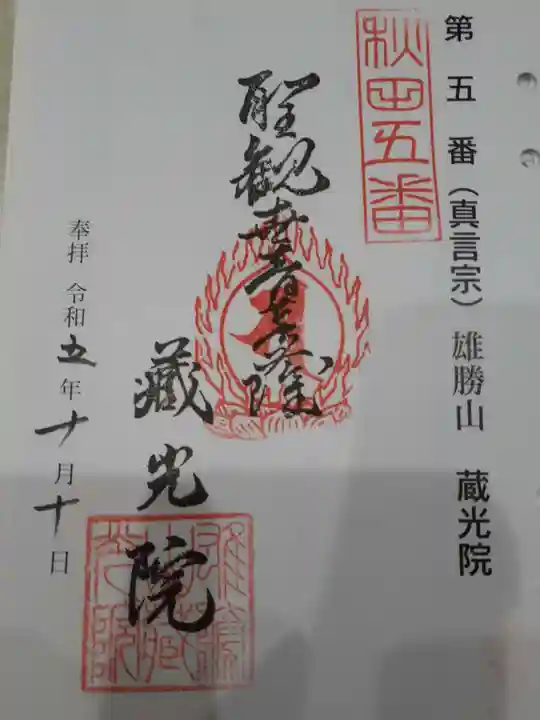 第五番(真言宗)雄勝山 蔵光院
秋田五番
聖観世音菩薩
蔵光院
奉拝 令和五年十月十日